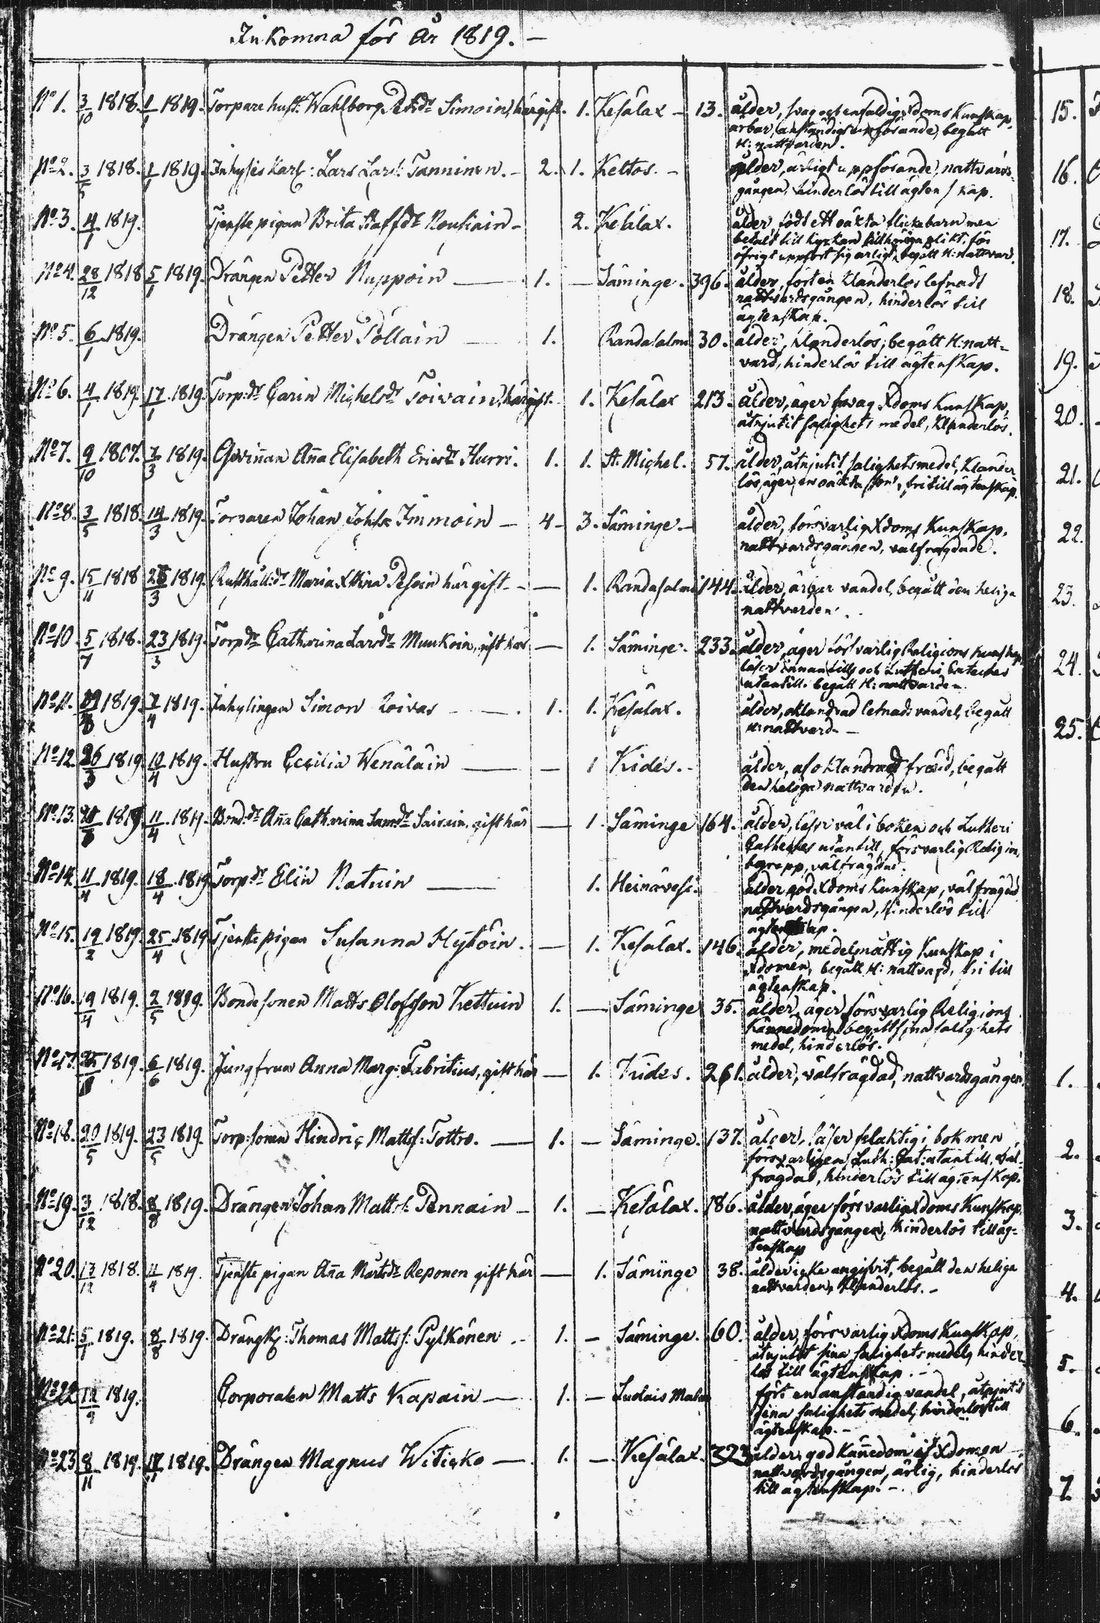 Inkomna för år 1819. –
No 1. 3/10 1818. 1/1 1819. Torpare hust: Wahlborg Simoin, här gift. 1. Kesälax – 13. ålder, svag och enfaldig Xdoms kunskap,
ärbar, anständig uppförande, begått
H: nattvarden.
No 2. 3/5 1818. 1/1 1819. Inhyses Karl: Lars Lars: Tanninen. – 2. 1. Keltos. – ålder, ärligt uppförande, nattvards-
gången, hinderlös till ägtenskap.
No 3. 4/1 1819. Tjenste pigan Brita Staffsdr Noukiain – 2. Kesälax. ålder, födt ett oäkta flickebarn men
betalt till kyrkan plikt, för
öfrigt uppfört sig ärligt, begått H: nattvard.
No 4. 28/12 1818 5/1 1819. Drängen Petter Nuppoin — 1. – Säminge. 396. ålder, fört en klanderlös lefnad
nattvardsgången, hinderlös till
ägtenskap.
No 5. 6/1 1819. Drängen Petter Pöllain — 1. Randasalmi 30. ålder, klanderlös, begått H: natt-
vard, hinderlös till ägtenskap.
No 6. 4/1 1819. 17/1 1819. Torp: dr Carin Michelsdr Toivain, här gift. 1. Kesälax 213. ålder, äger svag Xdoms kunskap,
åtnjutit salighets medel, klanderlös.
No 7. 9/10 1807. 7/3 1819. Qvinnan Anna Elisabeth Ericsdr Hurri. 1. 1. St. Michel. 57. ålder, åtnjutit salighetsmedel, klander
lös, äger en oäkta son, fri till ägtenskap.
No 8. 3/5 1818. 14/3 1819. Torparen Johan Johss: Immoin – 4 – 3. Säminge – ålder, försvarlig Xdoms kunskap,
nattvardsgången, välfrägdade.
No 9. 15/11 1818 1819. Maria Stina Pesoin här gift – – 1. Randasalmi 144. ålder, ärbar vandel, begått den heliga
nattvarden.
No 10. 5/7 1818. 23/3 1819. Torpdr Catharina Larsdr Muukoin, gift här – 1. Säminge. 233. ålder, äger försvarlig Religions kunskap
läser innantill och Lutheri Cateches
utantill. begått H: nattvarden.
No 11. 1819. 7/4 1819. Inhysingen Simon Loivas – 1. 1. Kesälax. ålder, oklandrad lefnads vandel, begått
H: nattvard –
No 12. 26/3 1819 10/4 1819. Hustru Cecilia Wenäläin — – 1 Kides. – ålder, af oklandrad fräjd, begått
den heliga nattvarden.
No 13. 1819 11/4 1819. Bond: dr Anna Catharina Samsdr Sairain, gift här – 1. Säminge 164. ålder, läser väl i boken och Lutheri
Cateches utantill, försvarlig Religions
begrepp, välfrägdad.
No 14. 11/4 1819. 18/4 1819. Torp: dr Elin Natuin — 1. Heinävesi. ålder, god Xdoms kunskap, välfrägdad
nattvardsgången, hinderlös till
ägtenskap.
No 15. 19/2 1819. 25/4 1819 Tjenstepigan Susanna Hyköin. – 1. Kesälax. 146. ålder, medelmåttig kunskap i
Xdomen, begått H: nattvard, fri till
ägtenskap.
No 16. 19/4 1819. 2/5 1819. Bondesonen Matts Olofsson Kettuin 1. – Säminge 35. ålder, äger försvarlig Religions
kännedom, begått sina salighets
medel, hinderlös.
No 17. 1819. 6/6 1819. Jungfrun Anna Marg: Fabritius, gift här – 1. Kides. 261. ålder, välfrägdad, nattvardsgången.
No 18. 20/5 1819. 23/5 1819. Torp: sonen Hindric Mattss: Tottro. — 1. – Säminge. 137. ålder, läser felaktig i bok men
försvarligen Luth: Cat: utantill, väl-
frägdad, hinderlös till ägtenskap.
No 19. 3/12 1818. 8/8 1819. Drängen Johan Matts: Pennain – 1. – Kesälax. 186. ålder, äger försvarlig Xdoms kunskap,
nattvardsgången, hinderlös till äg-
tenskap
No 20. 13/12 1818. 11/4 1819. Tjenste pigan Anna Mårtsdr Reponen gift här — 1. Säminge 38. ålder icke angifvit, begått den heliga
nattvarden, klanderlös. –
No 21. 5/7 1819. 8/8 1819. Dräng: Thomas Mattss: Pylkönen – 1. – Säminge. 60. ålder, försvarlig Xdoms kunskap,
åtnjutit sina salighetsmedel, hinder
lös till ägtenskap. –
No 22. 12/9 1819. Corporalen Matts Kapain – 1. – fört en anständig vandel, åtnjutit
sina salighets medel, hinderlös till
ägtenskap. –
No 23. 8/11 1819. 1819. Drängen Magnus Witicko — 1. – Kesälax. 323 ålder, god kännedom af Xdomen
nattvardsgången, ärlig, hinderlös
till ägtenskap. –
15.
16.
17.
18.
19.
20.
21.
22.
23.
24.
25.
1.
2.
3.
4.
5.
6.
7.